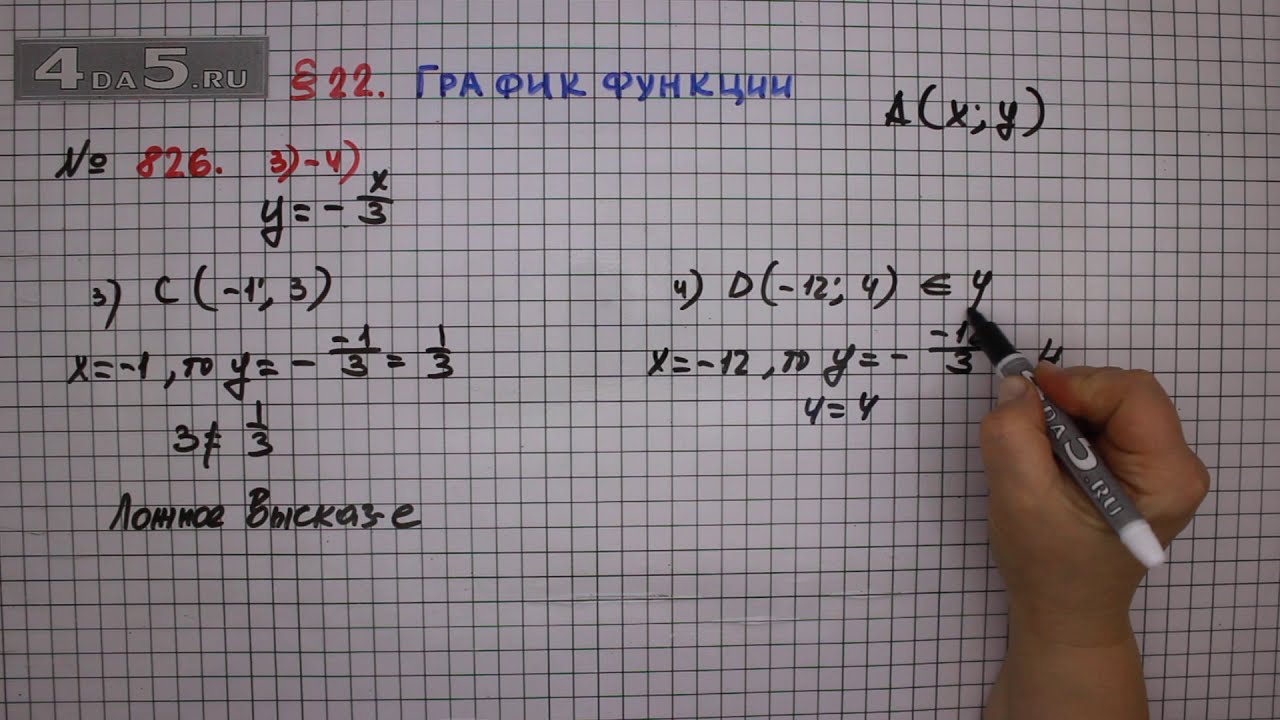 4DA5.RU
§22. ГРАФИК ФУНКЦИИ
A(x; y)
№ 826. 3)-4)
y = - x/3
3) C(-1; 3)
x = -1, то y = - -1/3 = 1/3
3 ≠ 1/3
Ложное Высказ-е
4) D(-12; 4) ∈ y
x = -12, то y = - -12/3 4
4 = 4
4DA5.RU